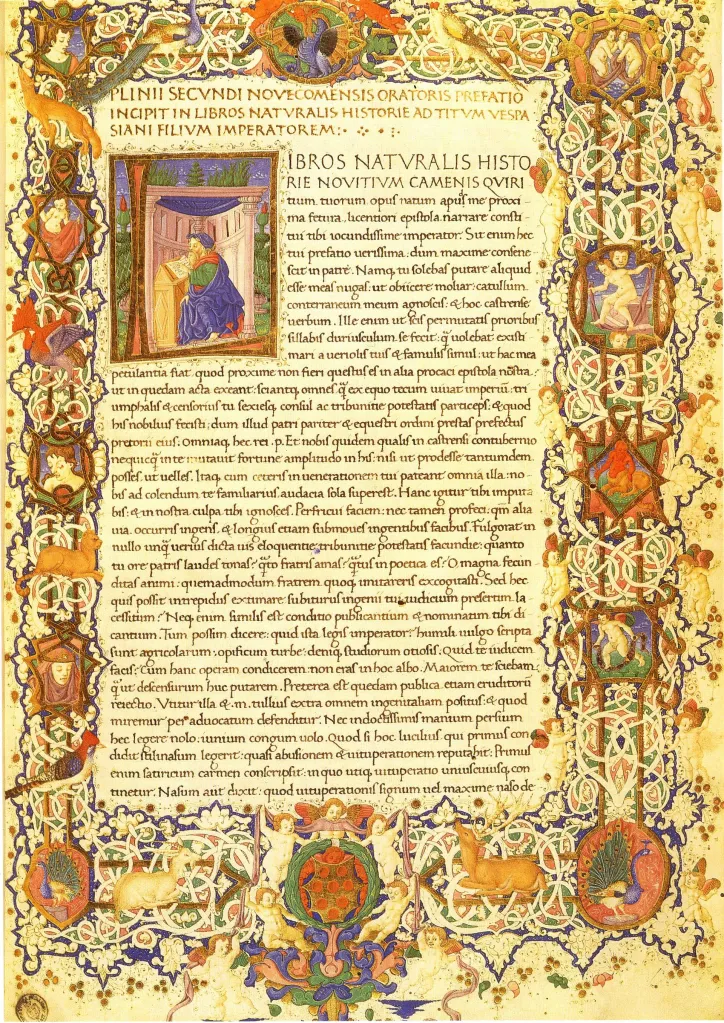 PLINII SECVNDI NOVECOMENSIS ORATORIS PREFATIO
INCIPIT IN LIBROS NATVRALIS HISTORIE AD TITVM VESPA
SIANI FILIVM IMPERATOREM:
LIBROS NATVRALIS HISTO
RIE NOVITIVM CAMENIS QVIRI
tium tuorum opus natum apud me proxi
ma fetura. licentiori epistola narrare consti
tui tibi iocundissime imperator. Sit enim hec
tui prefatio verissima. dum maxime consene
scit in patre. Namq; tu solebas putare aliquid
esse meas nugas: ut obiicere moliar: catullum
conterraneum meum agnoscis: & hoc castrense
verbum. Ille enim ut scis permutatis prioribus
sillabis duriusculum se fecit: q̄ volebat existi
mari a veriolis tuis & famulis simul: ut hac mea
petulantia fiat quod proxime non fieri questus es in alia procaci epistola nostra:
ut in quedam acta exeant: sciantq; omnes q̄ ex equo tecum uiuat imperiū: tri
umphalis & censorius tu sexiesq; consul ac tribunitie potestatis particeps: & quod
his nobilius fecisti: dum illud patri pariter & equestri ordini prestas prefectus
pretorii eius: Omniaq; hec rei .p. Et nobis quidem qualis in castrensi contubernio
nequicq̄ in te mutauit fortune amplitudo in his: nisi ut prodesse tantumdem
posses: ut uelles. Itaq; cum ceteris in uenerationem tui pateant omnia illa: no
bis ad colendum te familiarius audacia sola superest. Hanc igitur tibi imputa
bis: & in nostra culpa tibi ignosces. Perfricui faciem: nec tamen profeci: qm̄ alia
uia occurris ingens, & longius etiam submoues ingentibus facibus. Fulgorat in
nullo unq̄ verius dicta uis eloquentie: tribunitie potestatis facundie: quanto
tu ore patris laudes tonas? q̄to fratris amas? q̄tus in poetica es? O magna fecun
ditas animi: quemadmodum fratrem quoq; imitareris excogitasti. Sed hec
quis possit intrepidus extimare subiturus ingenii tui iudicium presertim la
cessitum? Neq; enim similis est conditio publicantium & nominatim tibi di
cantium. Tum possim dicere: quid ista legis imperator? humili uulgo scripta
sunt agricolarum: opificum turbe: deniq; studiorum otiosis: Quid te iudicem
facis? Cum hanc operam condicerem: non eras in hoc albo. Maiorem te sciebam
q̄ ut descensurum huc putarem. Preterea est quedam publica etiam eruditorū
reiectio. Vtitur illa & .m. tullius extra omnem ingenii aliam positus: & quod
miremur per aduocatum defenditur. Nec indoctissimis manium persium
hec legere nolo: iunium congum uolo. Quod si hoc lucilius qui primus con
didit stili nasum legerit: quasi abusionem & uituperationem reputabit: Primus
enim satiricum carmen conscripsit: in quo utiq; uituperatio uniuscuiusq; con
tinetur. Nasum aūt dixit: quod uituperationis signum uel maxime naso de